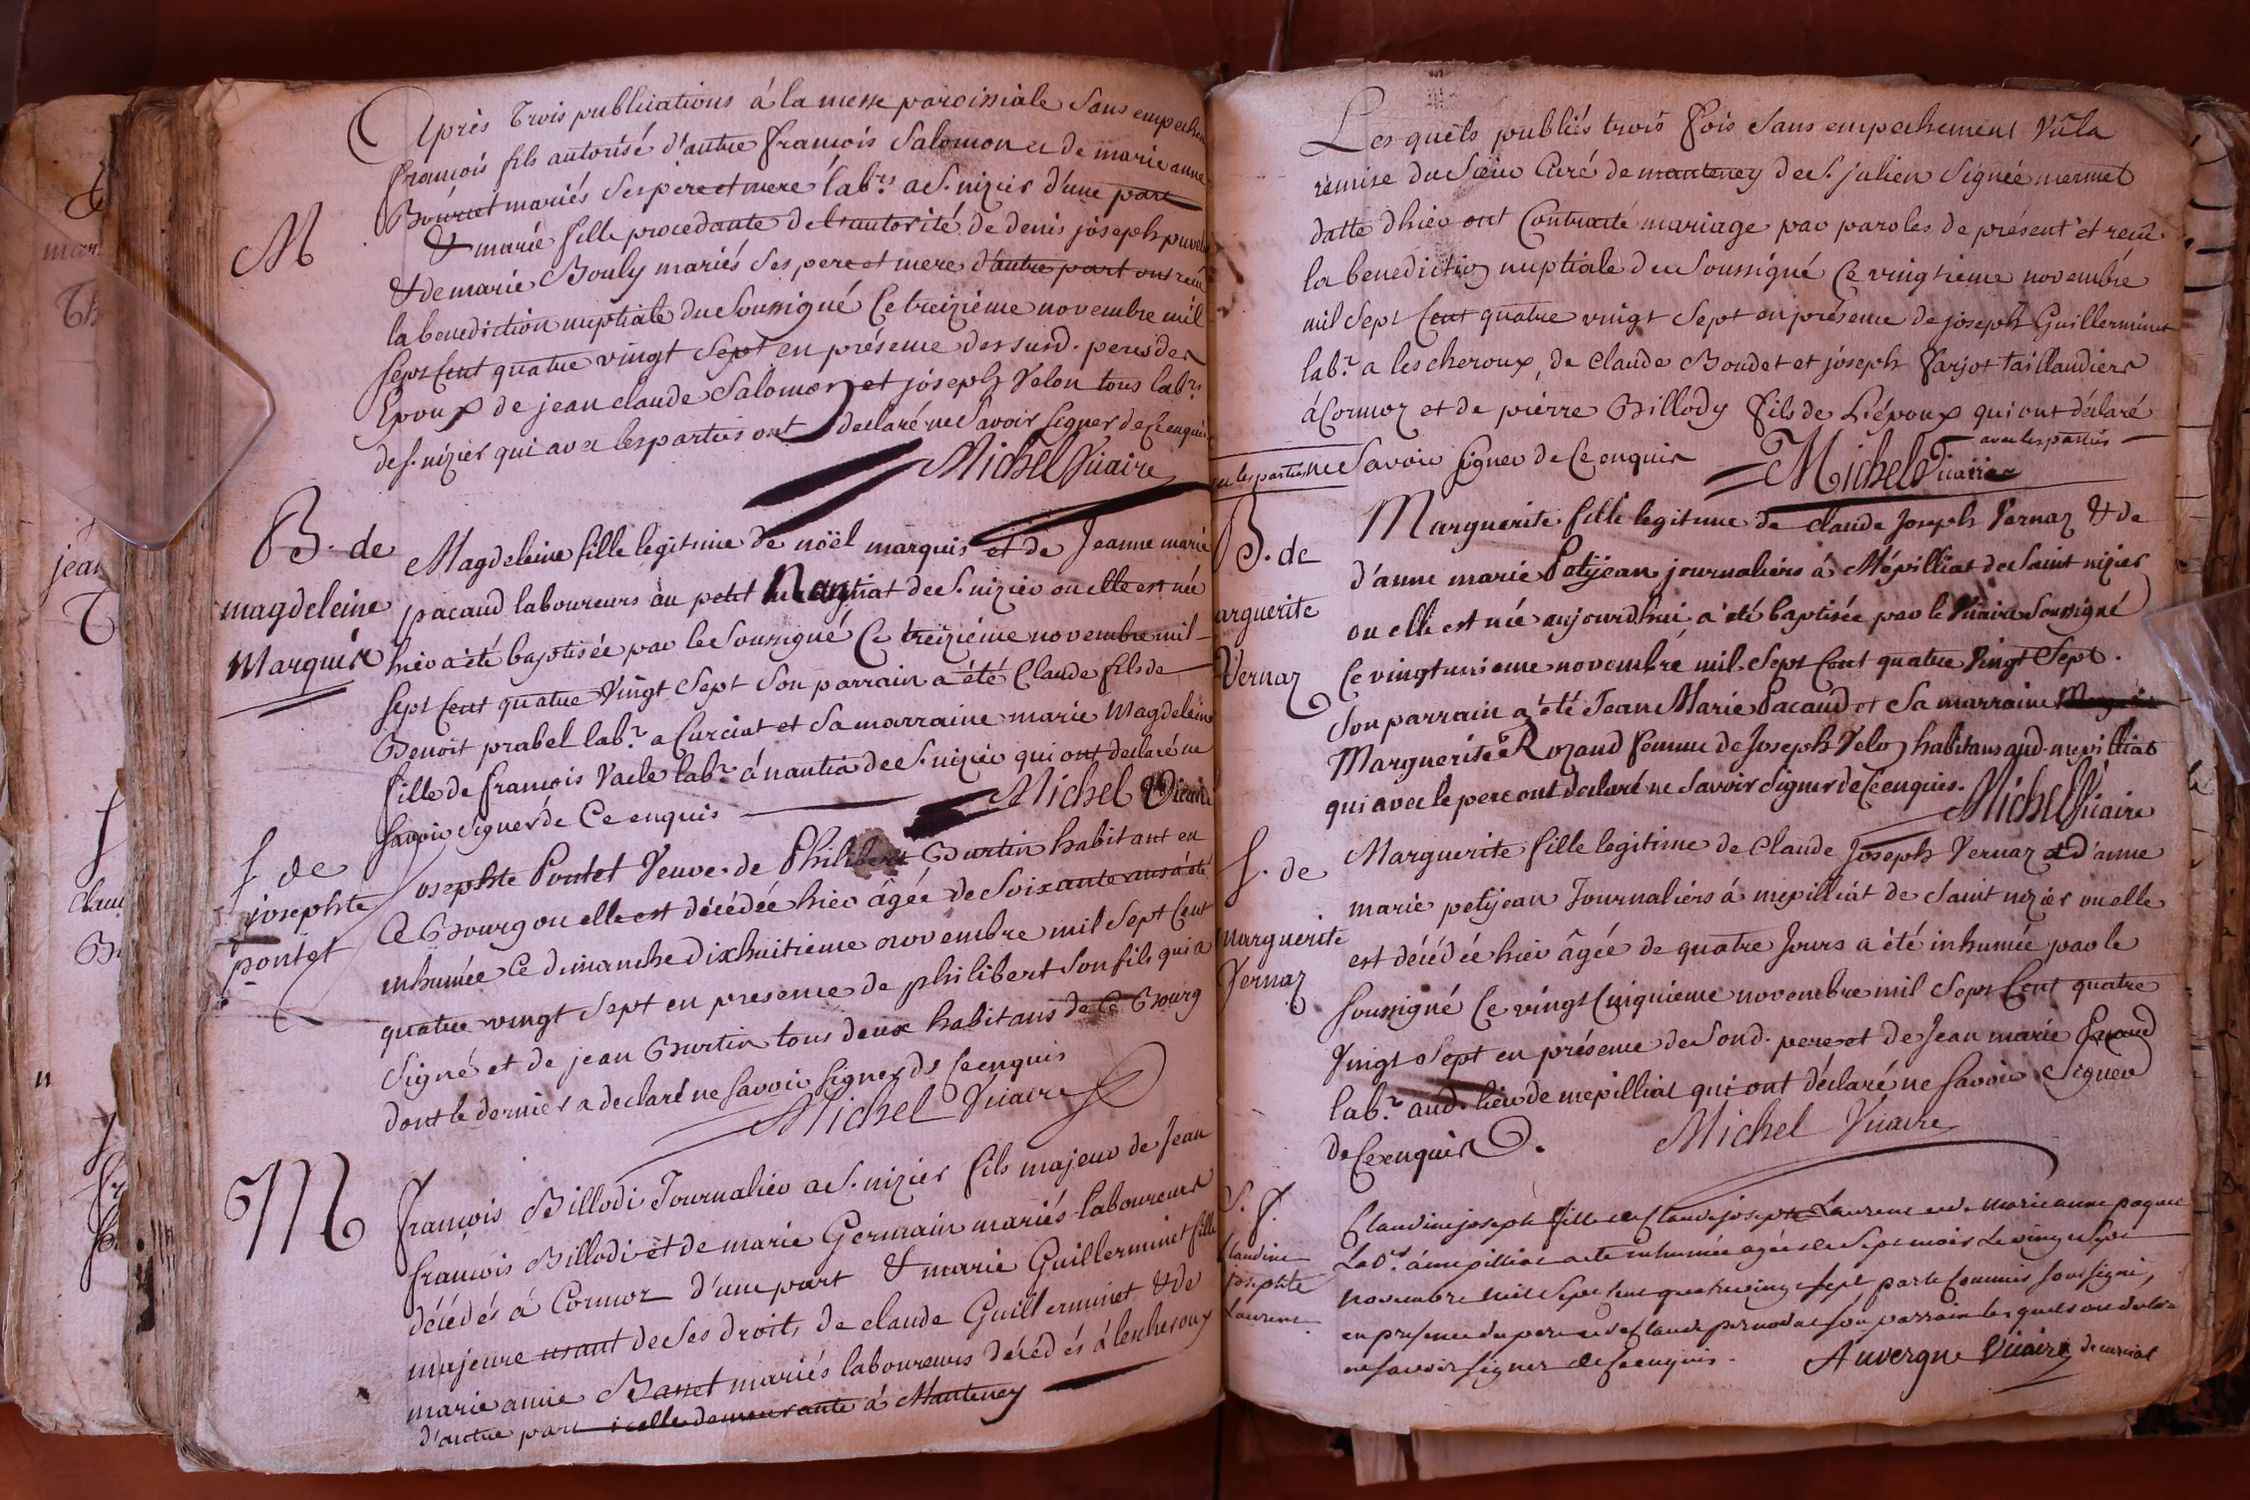 Après trois publications à la messe paroissiale sans empechem
françois fils autorisé d'autre françois Salomon et de marie anne
Bourcet mariés ses pere et mere lab.rs a S. nizier d'une part
M
& marie fille procedante de l'autorité de denis joseph puvel
& de marie Bouly mariés ses pere et mere d'autre part ont reçu
la benediction nuptiale du Soussigné Ce treizième novembre mil
sept Cent quatre vingt Sept en présence des susd. peres des
Epoux de jean claude Salomon et joseph Velon tous lab.rs
de S. nizier qui avec les parties ont declaré ne Savoir signer de Ce enquis
Michel Vicaire
B. de
magdeleine
Marquis
Magdeleine fille legitime de noël marquis et de Jeanne marie
pacaud laboureurs au petit Nantiat de S. nizier ou elle est née
hier a été baptisée par le Soussigné Ce treizième novembre mil
sept Cent quatre Vingt Sept Son parrain a été Claude fils de
Benoit prabel lab.r a Curciat et Sa marraine marie Magdeleine
fille de françois Vacle lab.r à nantia de S. nizier qui ont declaré ne
Savoir signer de Ce enquis
Michel Vicaire
S de
josephte
pontet
Josephte Pontet Veuve de Philibert Gurtin habitant en
Ce Bourg ou elle est décédée hier âgée de Soixante ans a été
inhumée Ce dimanche Dixhuitieme novembre mil Sept Cent
quatre vingt Sept en presence de philibert Son fils qui a
Signé et de jean Gurtin tous deux habitans de Ce Bourg
dont le dernier a declaré ne Savoir signer de Ce enquis
Michel Vicaire
M
françois Billodi Journalier a S. nizier fils majeur de Jean
françois Billodi et de marie Germain mariés laboureurs
décédés à Cormoz d'une part & marie Guillerminet fille
majeure usant de Ses droits de claude Guillerminet & de
marie anne Basset mariés laboureurs décédés à lescheroux
d'autre part icelle demeurante à Manteney
Les quels publiés trois fois sans empechement Vû la
remise du Sieur Curé de manteney de S. julien Signée mermet
datte d'hier ont Contracté mariage par paroles de présent et reçu
la benediction nuptiale du Soussigné Ce vingtieme novembre
mil Sept Cent quatre vingt Sept en présence de joseph Guillerminet
lab.r a lescheroux, de Claude Boudet et joseph farjot taillandiers
à Cormoz et de pierre Billody fils de L'époux qui ont déclaré
avec les parties
ne Savoir signer de Ce enquis
Michel Vicaire
B. de
Marguerite
Vernaz
Marguerite fille legitime de claude Joseph Vernaz & de
d'anne marie Petijean journaliers à Mépilliat de Saint nizier
ou elle est née aujourd'hui a été baptisée par le Vicaire Soussigné
Ce vingtunieme novembre mil Sept Cent quatre Vingt Sept.
Son parrain a été Jean Marie Pacaud et Sa marraine
Marguerite Rozand femme de Joseph Velon habitans aud. mepilliat
qui avec le pere ont declaré ne Savoir signer de Ce enquis.
Michel Vicaire
S. de
Marguerite
Vernaz
Marguerite fille legitime de Claude Joseph Vernaz & d'anne
marie petijean Journaliers à mepilliat de Saint nizier ou elle
est décédée hier âgée de quatre Jours a été inhumée par le
Soussigné Ce vingt Cinquieme novembre mil Sept Cent quatre
Vingt Sept en présence de Sond. pere et de Jean marie Pacaud
lab.r aud. lieu de mepilliat qui ont déclaré ne Savoir Signer
de Ce enquis
Michel Vicaire
S. f.
Claudine
josephte
Laurent
Claudine joseph fille de Claude joseph Laurent et de Marie anne poquet
Lab.rs à mepilliat a été inhumée agée de Sept mois Le vingt Sept
novembre mil Sept Cent quatre vingt Sept, par le Commis Soussigné,
en presence du pere et de Claude pernodat Son parrain lesquels ont declaré
ne Savoir signer de Ce enquis.
Auvergne Vicaire de curciat